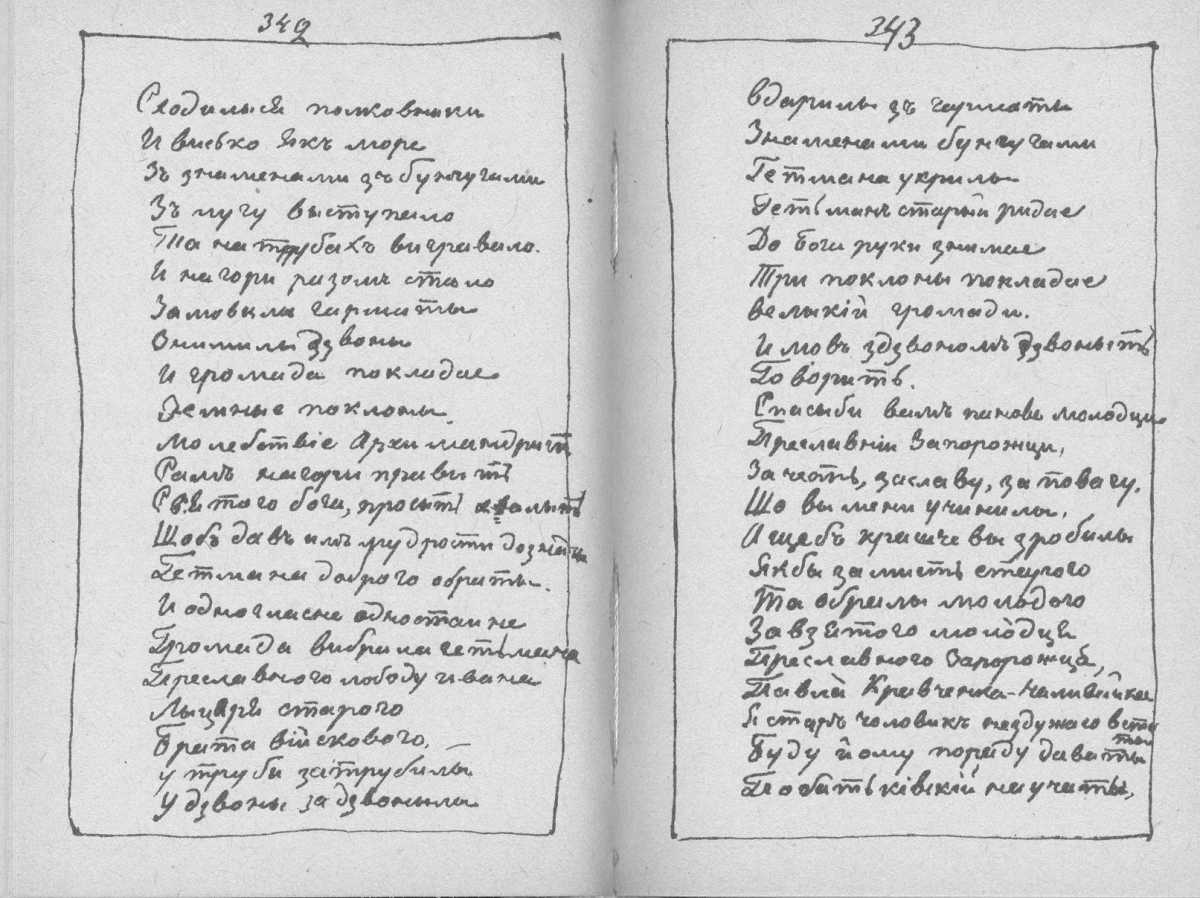 342
Сходылыся полковныки
И висько якъ море
Зъ знаменами зъ бунчугами
Зъ лугу выступало
Та на трубахъ вигравало.
И на гори разомъ стало
Замовкли гарматы
Онимилы дзвоны
И громада покладае
Земные поклоны
Молебствіе Архимандрыт
Самъ на гори править
Святого бога, просыть хвалыть
Щобъ давъ имъ мудрости дознаты
Гетмана доброго обраты.
И одногласне одностайне
Громада выбрала гетьмана
Преславного лободу ивана
Лыцаря старого
Брата війскового,
у труби затрубилы
У дзвоны задзвонылы
343
вдарилы зъ гарматы
Знаменами бунчугами
Гетмана укрилы
Гетьманъ старый ридае
До бога руки знимае
Три поклоны покладае
великій громади.
И мовъ здзвономъ дзвоныть
Говорить.
Спасыби вамъ панове молодци
Преславніи Запорожци,
За честь, за славу, за повагу.
Що вы мени учинилы,
А щебъ краще вы зробилы
Якбы замисть старого
Та обралы молодого
Завзятого молодця
Преславного Запорожця,
Павла Кравченка-Наливайка
Я старъ чоловикъ нездужаю вста
ты
Буду йому пораду даваты
По батьківскій научаты,